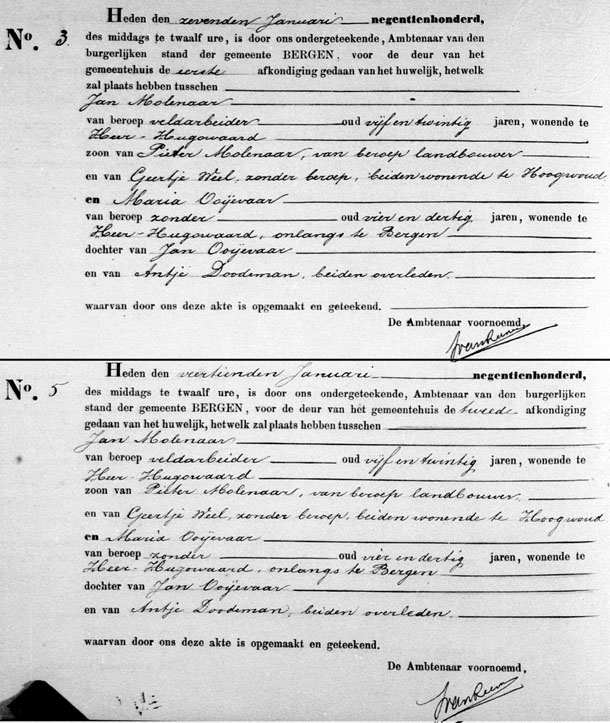 Heden den zevenden Januari negentienhonderd,
No. 3. des middags te twaalf ure, is door ons ondergeteekende, Ambtenaar van den
burgerlijken stand der gemeente BERGEN, voor de deur van het
gemeentehuis de eerste afkondiging gedaan van het huwelijk, hetwelk
zal plaats hebben tusschen
Jan Molenaar
van beroep veldarbeider oud vijf en twintig jaren, wonende te
Heer-Hugowaard
zoon van Pieter Molenaar, van beroep landbouwer
en van Geertje Weel, zonder beroep, beiden wonende te Hoogwoud
en Maria Ooijevaar
van beroep zonder oud vier en dertig jaren, wonende te
Heer-Hugowaard, onlangs te Bergen
dochter van Jan Ooijevaar
en van Antje Doodeman, beiden overleden.
waarvan door ons deze akte is opgemaakt en geteekend.
De Ambtenaar voornoemd,
Heden den veertienden Januari negentienhonderd,
No. 5 des middags te twaalf ure, is door ons ondergeteekende, Ambtenaar van den burgerlijken
stand der gemeente BERGEN, voor de deur van het gemeentehuis de tweede afkondiging
gedaan van het huwelijk, hetwelk zal plaats hebben tusschen
Jan Molenaar
van beroep veldarbeider oud vijf en twintig jaren, wonende te
Heer-Hugowaard
zoon van Pieter Molenaar, van beroep landbouwer.
en van Geertje Weel, zonder beroep, beiden wonende te Hoogwoud
en Maria Ooijevaar
van beroep zonder oud vier en dertig jaren, wonende te
Heer-Hugowaard, onlangs te Bergen
dochter van Jan Ooijevaar
en van Antje Doodeman, beiden overleden.
waarvan door ons deze akte is opgemaakt en geteekend.
De Ambtenaar voornoemd,